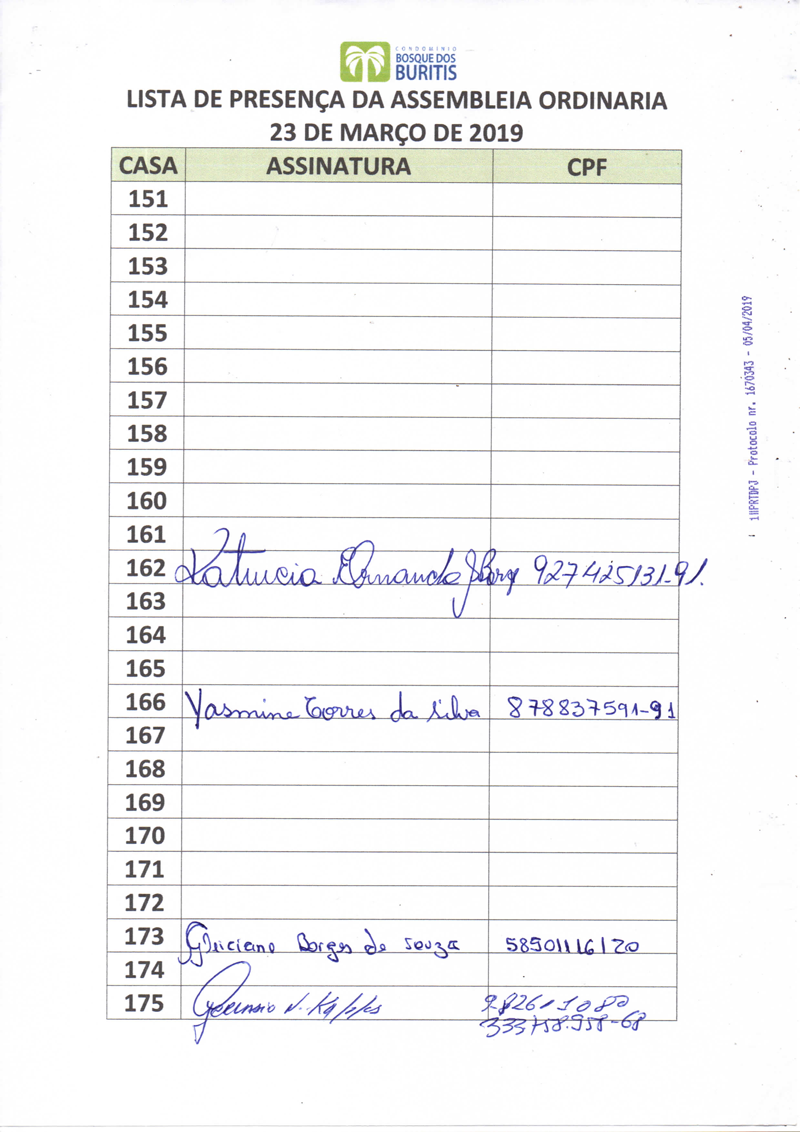 CONDOMÍNIO
BOSQUE DOS
BURITIS
LISTA DE PRESENÇA DA ASSEMBLEIA ORDINARIA
23 DE MARÇO DE 2019
CASA ASSINATURA CPF
151
152
153
154
155
156
157
158
159
160
161
162 927425131-91.
163
164
165
166 Yasmine Torres da Silva 878837591-91
167
168
169
170
171
172
173 Borges de Souza 58501116120
174
175 333758.958-68
Protocolo nr. 1670343 - 05/04/2019